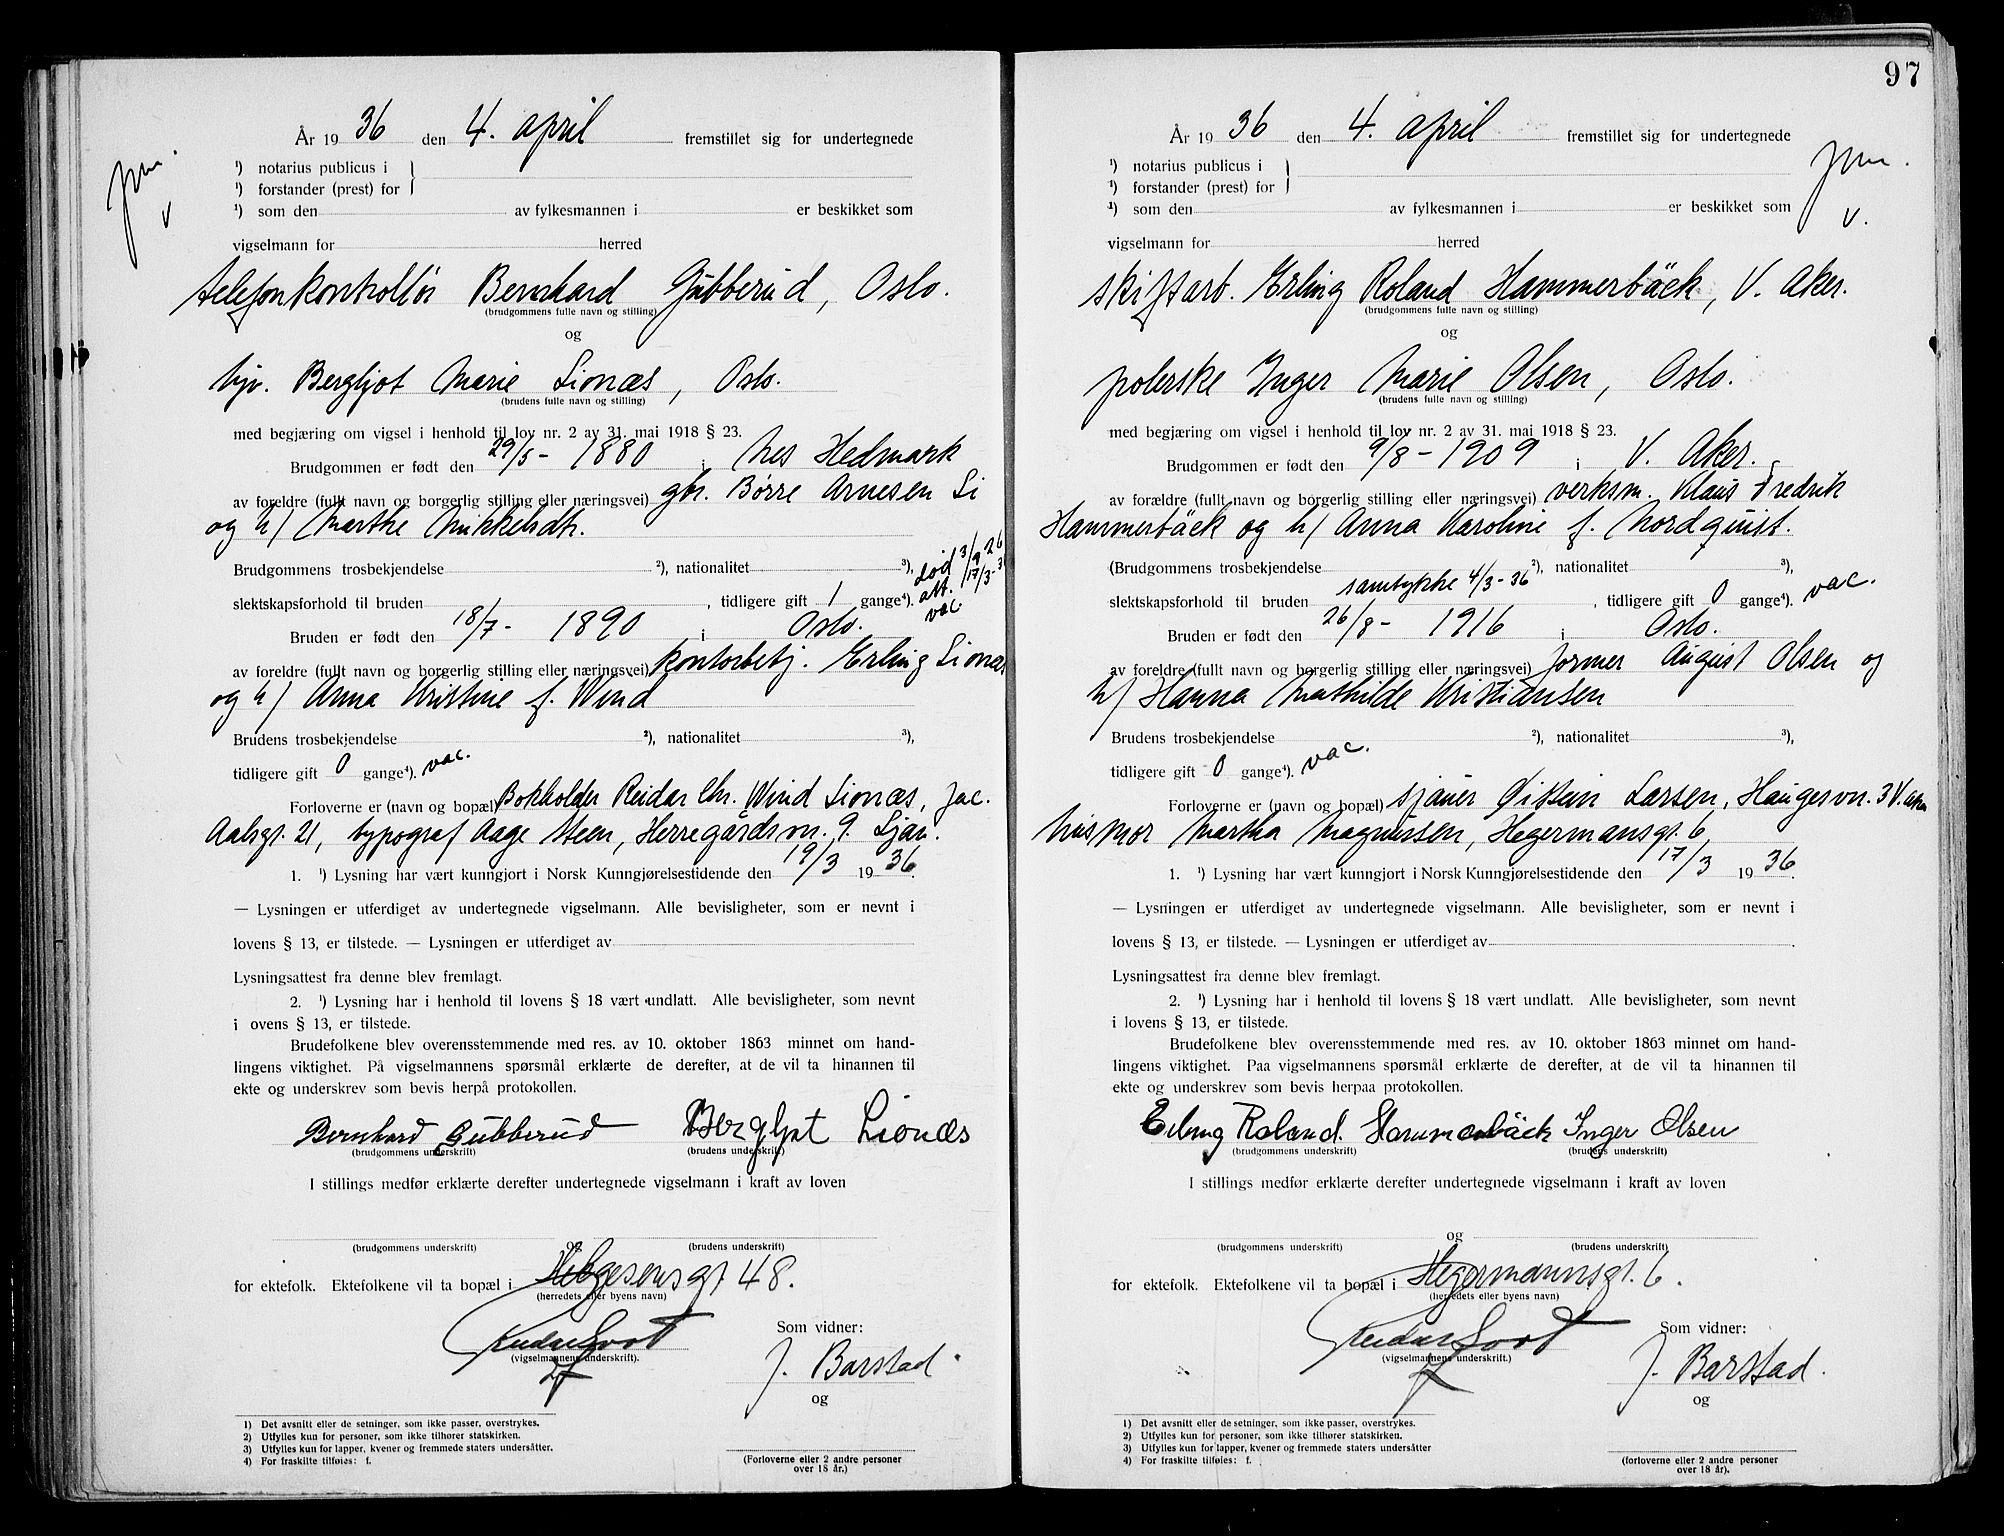 År 19 36 den 4. april fremstillet sig for undertegnede
¹) notarius publicus i
¹) forstander (prest) for
¹) som den av fylkesmannen i er beskikket som
vigselmann for herred
telefonkontrollør Bernhard Gubberud, Oslo.
(brudgommens fulle navn og stilling)
og
hjv. Bergljot Marie Lionæs, Oslo.
(brudens fulle navn og stilling)
med begjæring om vigsel i henhold til lov nr. 2 av 31. mai 1918 § 23.
Brudgommen er født den 29/5 - 1880 i Nes Hedmark
av foreldre (fullt navn og borgerlig stilling eller næringsvei) gbr. Børre Arnesen Li
og h/ Marthe Mikkelsdt.
Brudgommens trosbekjendelse ²), nationalitet ³), død 3/9 26
att. 17/3-3
slektskapsforhold til bruden , tidligere gift 1 gange⁴). vac.
Bruden er født den 18/7 - 1890 i Oslo.
av foreldre (fullt navn og borgerlig stilling eller næringsvei) kontorbetj. Erling Lionæs
og h/ Anna Kristine f. Wind
Brudens trosbekjendelse ²), nationalitet ³),
tidligere gift 0 gange⁴). vac.
Forloverne er (navn og bopæl) Bokholder Reidar Chr. Wind Lionæs, Jac.
Aalsgt. 21, typograf Aage Steen, Herregårdsvn. 9. Ljan.
1. ¹) Lysning har vært kunngjort i Norsk Kunngjørelsestidende den 19/3 19 36.
— Lysningen er utferdiget av undertegnede vigselmann. Alle bevisligheter, som er nevnt i
lovens § 13, er tilstede. — Lysningen er utferdiget av
Lysningsattest fra denne blev fremlagt.
2. ¹) Lysning har i henhold til lovens § 18 vært undlatt. Alle bevisligheter, som nevnt
i ovens § 13, er tilstede.
Brudefolkene blev overensstemmende med res. av 10. oktober 1863 minnet om hand-
lingens viktighet. På vigselmannens spørsmål erklærte de derefter, at de vil ta hinannen til
ekte og underskrev som bevis herpå protokollen.
Bernhard Gubberud Bergljot Lionæs
(brudgommens underskrift) (brudens underskrift)
I stillings medfør erklærte derefter undertegnede vigselmann i kraft av loven
og
(brudgommens underskrift) (brudens underskrift)
for ektefolk. Ektefolkene vil ta bopæl i Helgesensgt 48.
(herredets eller byens navn)
Som vidner:
(vigselmannens underskrift).
J. Barstad.
og
1) Det avsnitt eller de setninger, som ikke passer, overstrykes.
2) Utfylles kun for personer, som ikke tilhører statskirken.
3) Utfylles kun for lapper, kvener og fremmede staters undersåtter.
4) For fraskilte tilføies: f.
(Forloverne eller 2 andre personer
over 18 år.)
97
År 19 36 den 4. april fremstillet sig for undertegnede
¹) notarius publicus i
¹) forstander (prest) for
¹) som den av fylkesmannen i er beskikket som
vigselmann for herred
skiftarb. Erling Roland Hammerbäck, V. Aker.
(brudgommens fulle navn og stilling)
og
polerske Inger Marie Olsen, Oslo.
(brudens fulle navn og stilling)
med begjæring om vigsel i henhold til lov nr. 2 av 31. mai 1918 § 23.
Brudgommen er født den 9/8 - 1909 i V. Aker.
av forældre (fullt navn og borgerlig stilling eller næringsvei) verksm. Klaus Fredrik
Hammerbäck og h/ Anna Karoline f. Nordquist.
(Brudgommens trosbekjendelse ²), nationalitet ³),
samtykke 4/3-36
slektskapsforhold til bruden , tidligere gift 0 gange⁴). vac.
Bruden er født den 26/8 - 1916 i Oslo.
av foreldre (fullt navn og borgerlig stilling eller næringsvei) former August Olsen og
h/ Hanna Mathilde Kristiansen
Brudens trosbekjendelse ²), nationalitet ³),
tidligere gift 0 gange⁴). vac.
Forloverne er (navn og bopæl) sjauer Øistein Larsen, Haugesvn. 3 V. aker
husmor Martha Magnussen, Hegermansgt. 6
1. ¹) Lysning har vært kunngjort i Norsk Kunngjørelsestidende den 17/3 19 36.
— Lysningen er utferdiget av undertegnede vigselmann. Alle bevisligheter, som er nevnt i
lovens § 13, er tilstede. — Lysningen er utferdiget av
Lysningsattest fra denne blev fremlagt.
2. ¹) Lysning har i henhold til lovens § 18 vært undlatt. Alle bevisligheter, som nevnt
i lovens § 13, er tilstede.
Brudefolkene blev overensstemmende med res. av 10. oktober 1863 minnet om hand-
lingens viktighet. Paa vigselmannens spørsmål erklærte de derefter, at de vil ta hinannen til
ekte og underskrev som bevis herpaa protokollen.
Erling Roland. Hammerbäck Inger Olsen
(brudgommens underskrift) (brudens underskrift)
I stillings medfør erklærte derefter undertegnede vigselmann i kraft av loven
og
(brudgommens underskrift) (brudens underskrift)
for ektefolk. Ektefolkene vil ta bopæl i Hegermannsgt. 6.
(herredets eller byens navn)
Som vidner:
(vigselmannens underskrift.)
J. Barstad.
og
1) Det avsnitt eller de setninger, som ikke passer, overstrykes.
2) Utfylles kun for personer, som ikke tilhører statskirken.
3) Utfylles kun for lapper, kvener og fremmede staters undersåtter
4) For fraskilte tilføies: f.
(forloverne eller 2 andre personer
over 18 år).